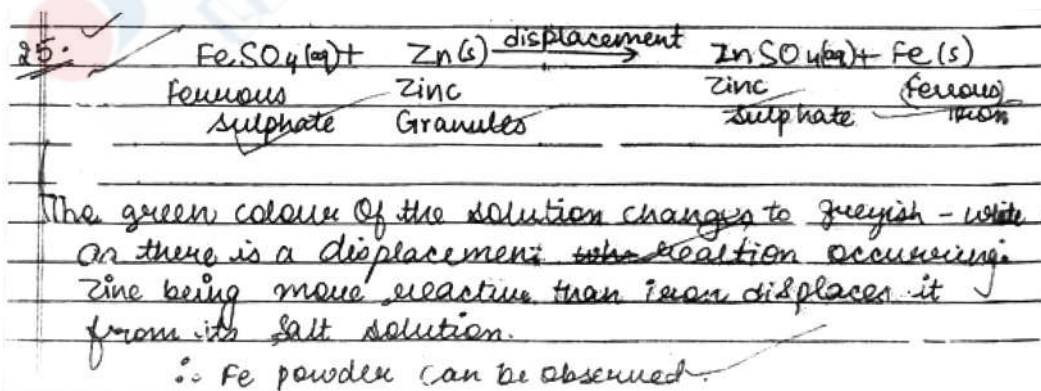 25. FeSO4(aq) + Zn(s) displacement → ZnSO4(aq) + Fe(s)
Ferrous Zinc Zinc (Ferrous)
sulphate Granules sulphate Iron
The green colour of the solution changes to greyish - white
as there is a displacement reaction occurring.
Zinc being more reactive than iron displaces it
from its salt solution.
∴ Fe powder can be observed.